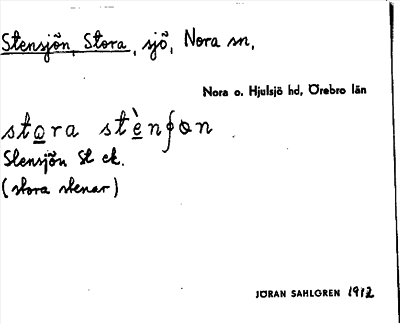 Stensjön, Stora, sjö, Nora sn,
Nora o. Hjulsjö hd, Örebro län
sto̲ra stè̲nʃɷn
Stensjön St ek.
(stora stenar)
JÖRAN SAHLGREN 1912